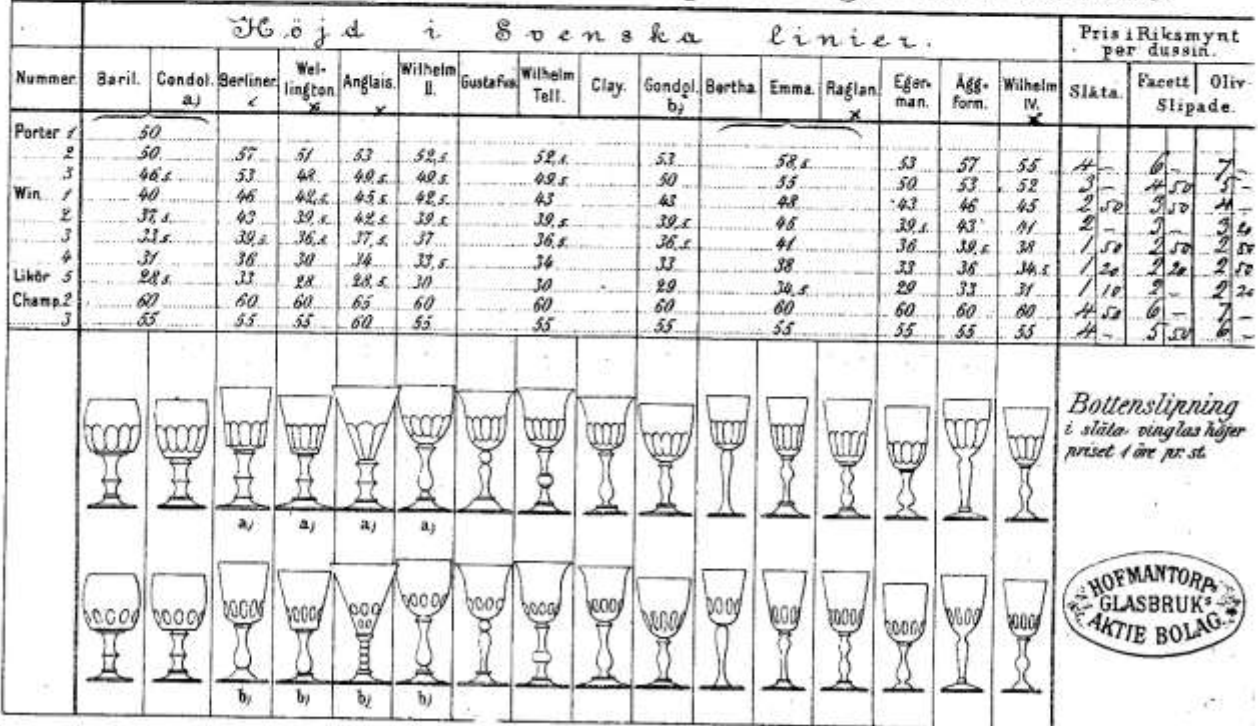 Höjd i Svenska linier.
Pris i Riksmynt per dussin.
Nummer. Baril. Gondol. a) Berliner Wellington. Anglais. Wilhelm II. Gustafva. Wilhelm Tell. Clay. Gondol. b) Bertha. Emma. Raglan. Egerman. Äggform. Wilhelm IV. Släta. Facett Oliv-
Slipade.
Porter 1 50
2 50 57 51 53 52,5 52,5 53 58,5 53 57 55 4 - 6 - 7 -
3 46,5 53 48 49,5 49,5 49,5 50 55 50 53 52 3 - 4 50 5 -
Win 1 40 46 42,5 45,5 42,5 43 43 48 43 46 45 2 50 3 50 4 -
2 37,5 43 39,5 42,5 39,5 39,5 39,5 39,5 43 41 2 - 3 - 3 20
3 33,5 39,5 36,5 37,5 37 36,5 36,5 41 36 39,5 38 1 50 2 50 2 50
4 31 36 30 34 33,5 34 33 38 33 36 34,5 1 20 2 20 2 50
Likör 5 28,5 33 28 28,5 30 30 29 34,5 29 33 31 1 10 2 - 2 20
Champ. 2 60 60 60 65 60 60 60 60 60 60 60 4 50 6 - 7 -
3 55 55 55 60 55 55 55 55 55 55 55 4 - 5 50 6 -
Bottenslipning
i släta vinglas höjer
priset 1 öre pr. st.
a) a) a) a)
HOFMANTORPS
GLASBRUKS
AKTIE BOLAG.
b) b) b) b)